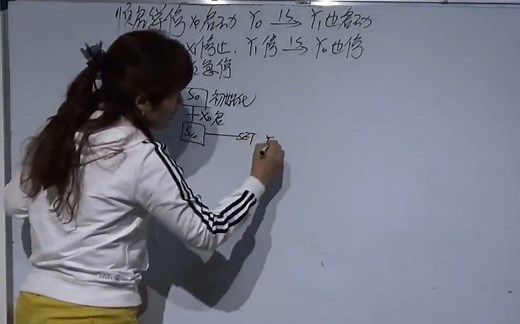 顺启逆停 X0启动 Y0 1S→ Y1也启动
X1停止. Y1停 1S→ Y0也停
X2急停
S0 初始化
X0启
S10 SET Y